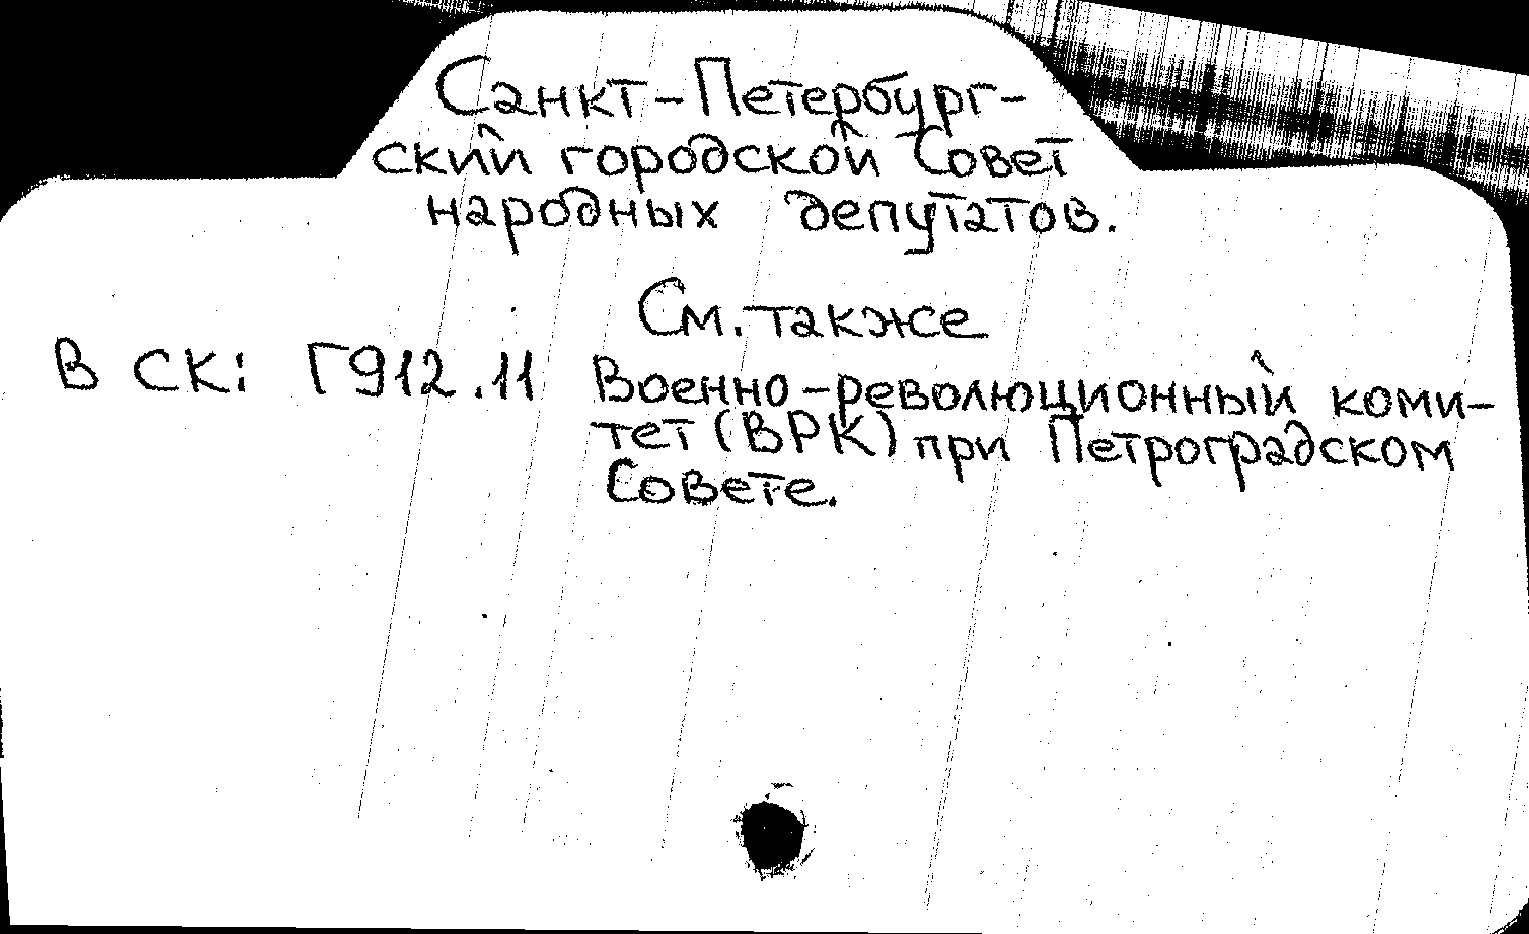 Санкт-Петербург-
ский городской Совет
народных депутатов.
См. также
В СК: Г912.11 Военно-революционный коми-
тет (ВРК) при Петроградском
Совете.